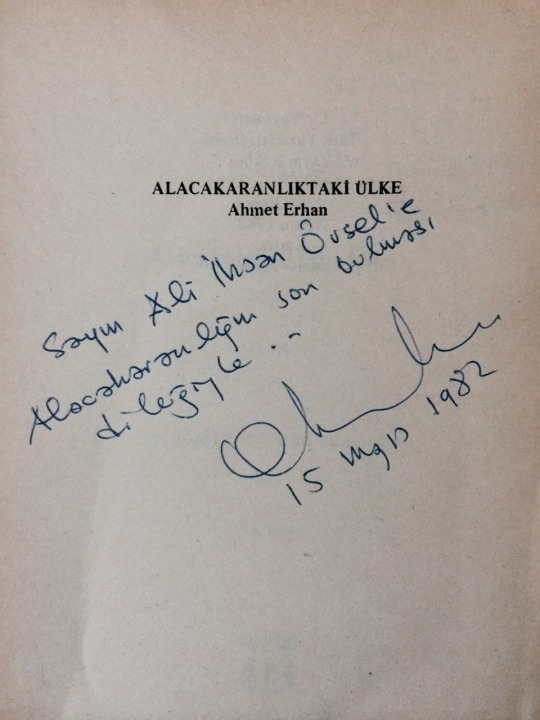 ALACAKARANLIKTAKİ ÜLKE
Ahmet Erhan
Sayın Ali İhsan Örsel'e
Alacakaranlığın son bulması
dileğiyle...
15 Mayıs 1982